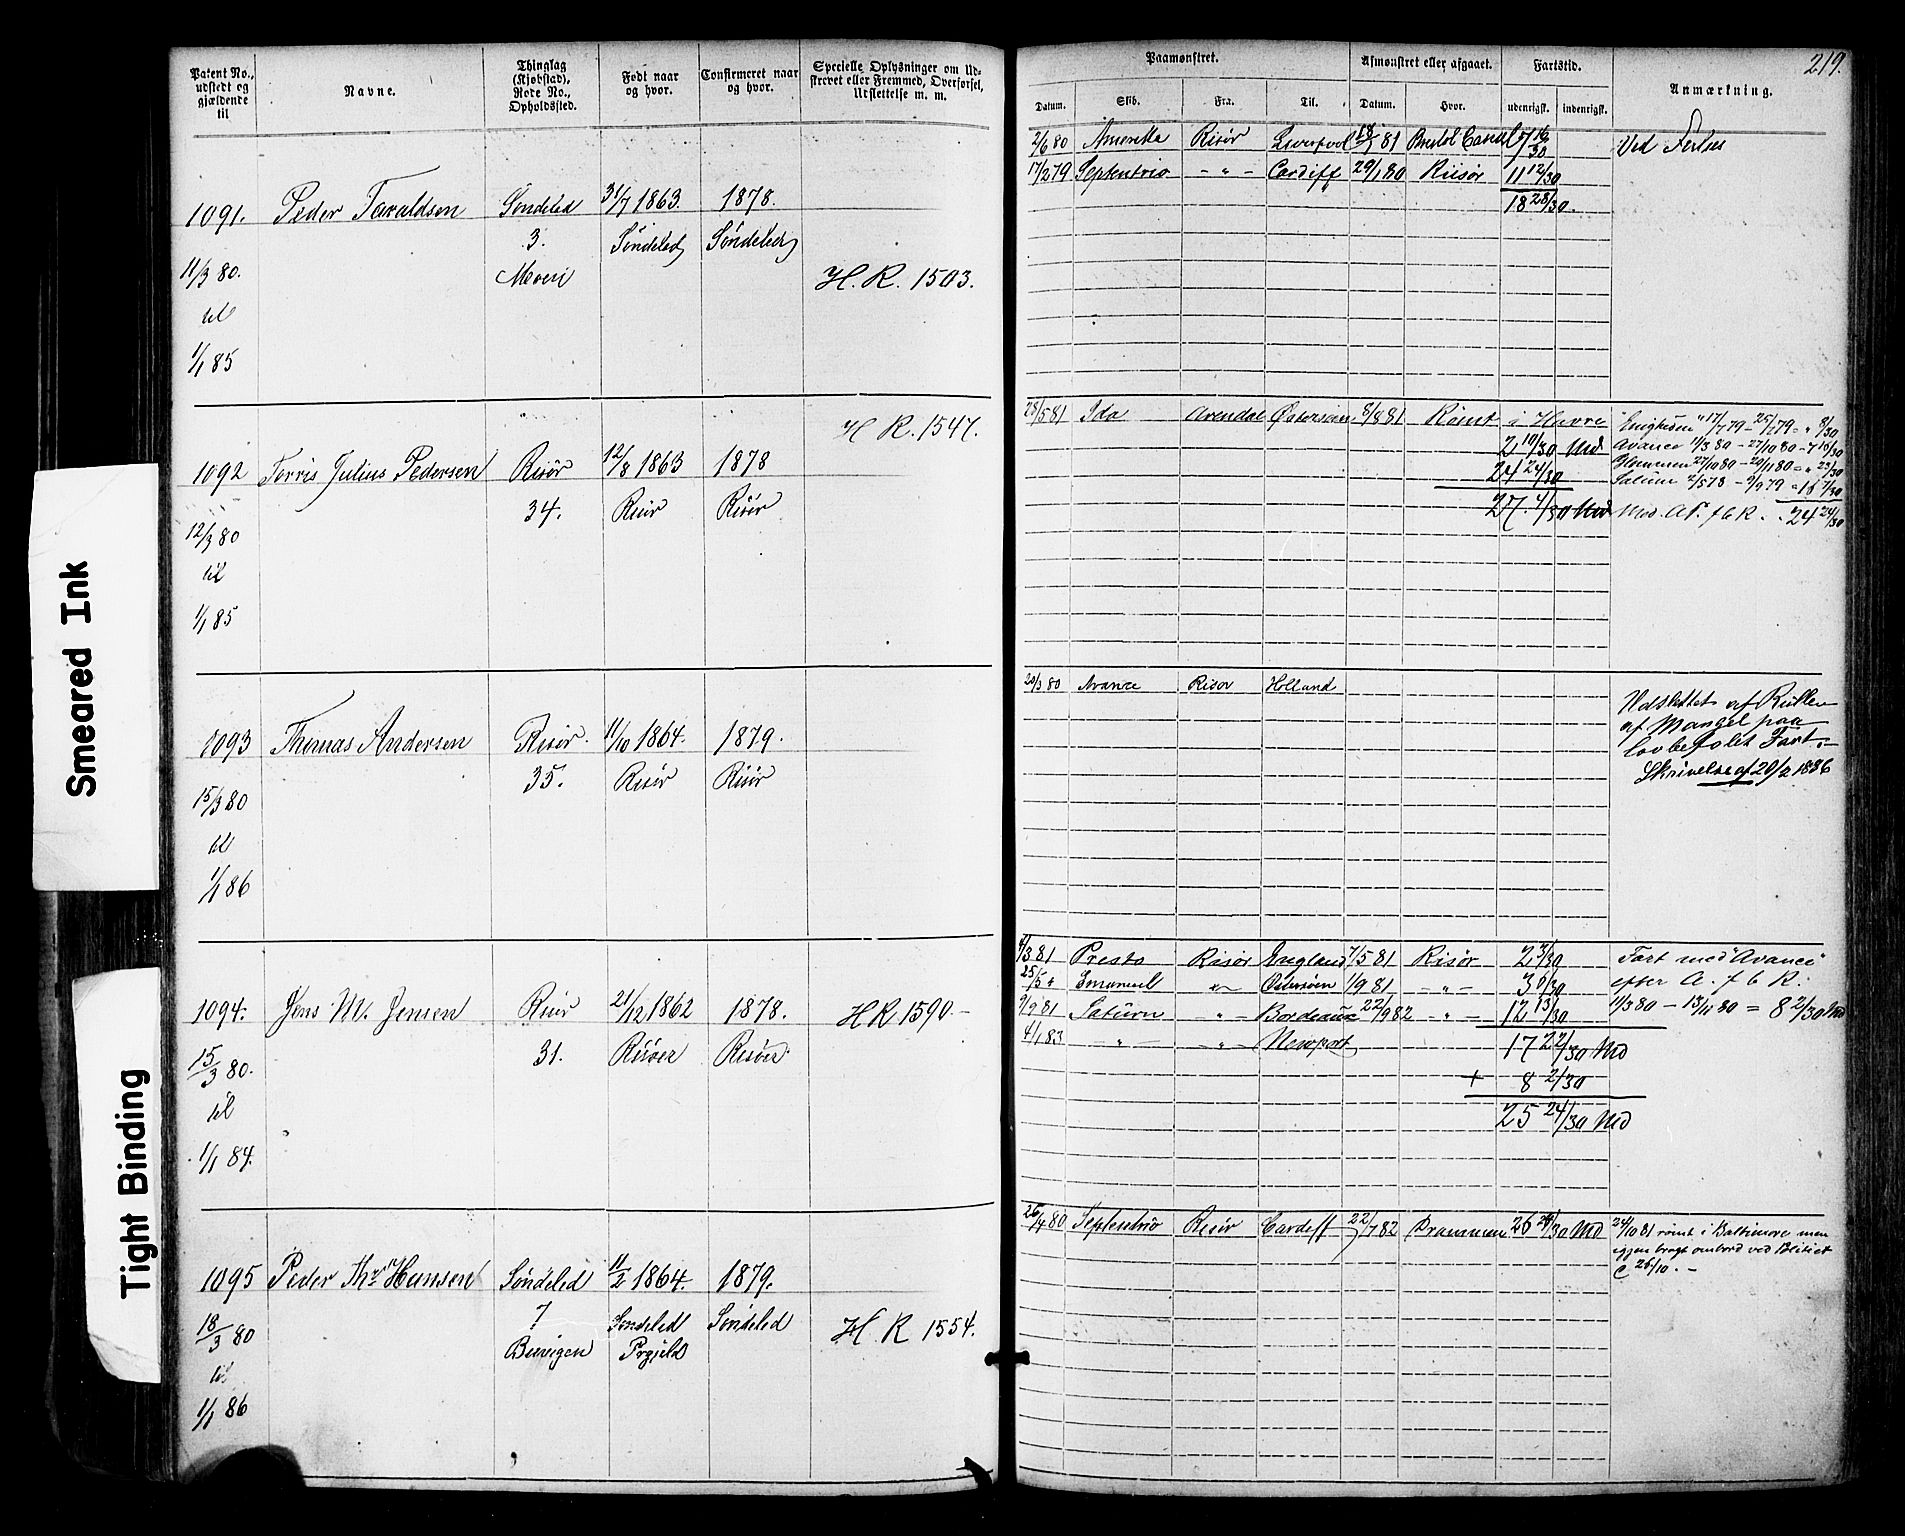 Smeared Ink
Tight Binding
Patent No., udstedt og gjældende til
Navne.
Thinglag (Kjøbstad), Rode No., Opholdssted.
Født naar og hvor.
Confirmeret naar og hvor.
Specielle Oplysninger om Udskrevet eller Fremmed, Overførsel, Udslettelse m. m.
Paamønstret.
Afmønstret eller afgaaet.
Fartstid.
Anmærkning.
219.
Datum. Skib. Fra. Til. Datum. Hvor. udenrigsk. indenrigsk.
1091. Peder Taraldsen Søndeled 31/7 1863. 1878.
3. Søndeled Søndeled
11/3 80. H. R. 1503.
til
1/1 85
2/6 80 Risør Liverpool 81
Ved Forlis
17/2 79 Septentrio - " - Cardiff 29/1 80 Riisør 11 12/30
18 28/30.
1092 Torris Julius Pedersen Risør 12/8 1863 1878 H R. 1547.
34. Risør Risør
12/3 80
til
1/1 85
28/5 81 Ida Arendal Østersøen 8/8 81 Rømt i Havre
2 10/30 Md
24 24/30
27 4/30 Md
Avance 11/3 80 - 27/10 80 - 7 16/30
24 24/30
1093 Thomas Andersen Risør. 11/10 1864. 1879.
35. Risør Risør
15/3 80
til
1/1 86
20/3 80 Avance Risør Holland
Udslettet af Rullen
af Mangel paa
lovbefalet Fart.-
Skrivelse af 20/2 1886
1094. Jens M. Jensen Risør 21/12 1862 1878. H R 1590 -
31. Risøer Risøer
15/3 80.
til
1/1 84.
4/3 81 Presto Risør England 7/5 81 Risør 2 3/30
25/5 " Emanuel " Østersøen 1/9 81 - " - 3 6/30
9/9 81 Saturn - " - Bordeaux 22/9 82 - " - 12 13/30
4/1 83 - " - - " - Newport 17 22/30 Md
+ 8 2/30
25 24/30 Md
Fart med "Avance"
efter A. f 6 R.
11/3 80 - 13/11 80 = 8 2/30 Md
1095 Peder Thr Hansen Søndeled 11/2 1864. 1879.
7 Søndeled Søndeled
Præjeld
18/3 80 H. R 1554.
til
1/1 86
26/4 80 Septentrio Risør Cardiff 22/7 82 Drammen 26 /30 Md
24/10 81 rømt i Baltimore men
igjen bragt ombord ved Politiet
26/10. -